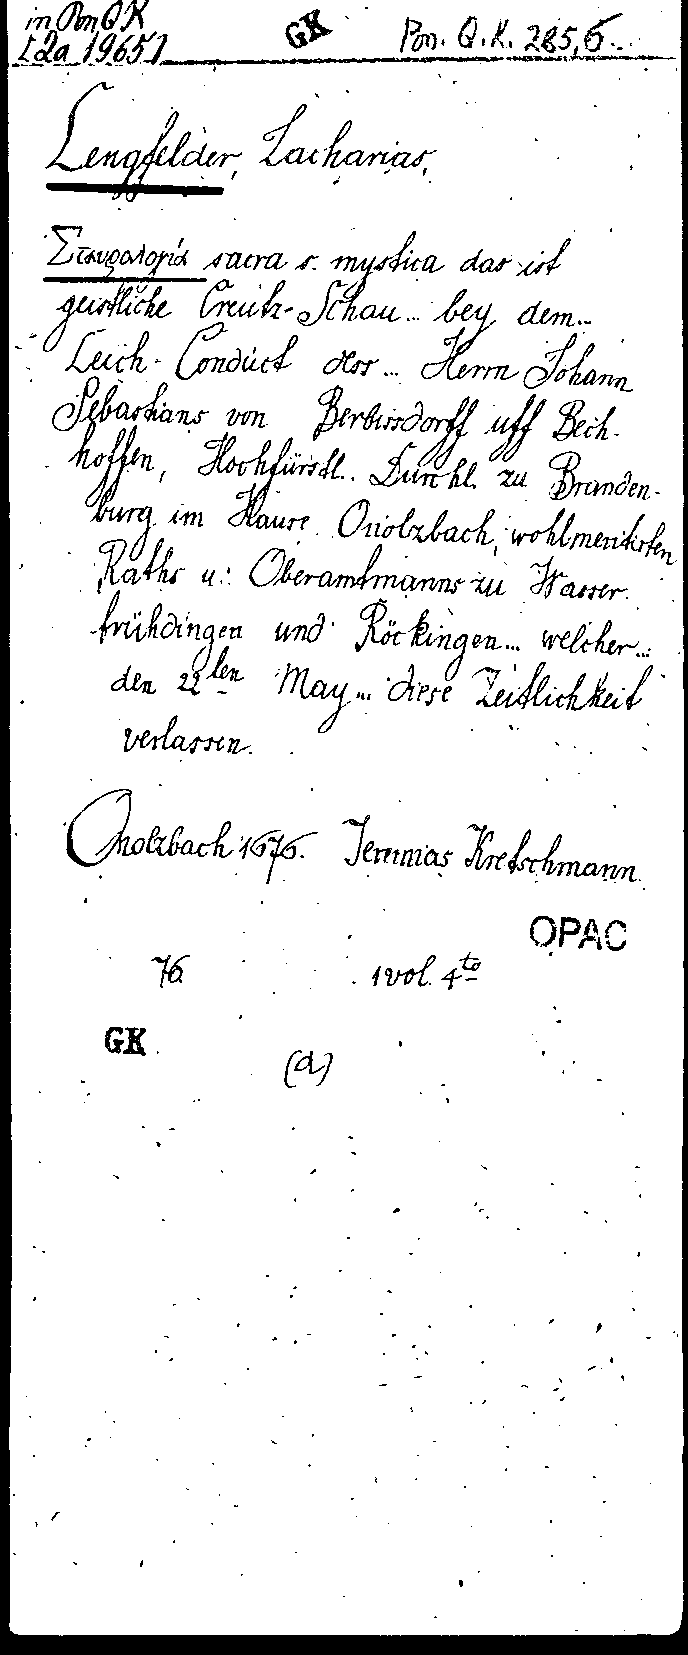 in Pon QK GK Pon. Q. K. 285,6...
[2a 1965]
Lengfelder, Zacharias,
Σταυρολογία sacra s. mystica das ist
geistliche Creütz-Schau... bey dem...
Leich-Condüct dess... Herrn Johann
Sebastians von Berbissdorff uff Bech-
hoffen, Hochfürstl. Durchl. zu Branden-
burg im Hause Onolzbach, wohlmeritirten
Raths u: Oberamtmanns zu Wasser-
trühdingen und Röckingen... welcher...
den 22ten May... diese Zeitlichkeit
verlassen.
Onolzbach 1676. Jeremias Kretschmann.
OPAC
76 1 vol. 4to
GK
(a)